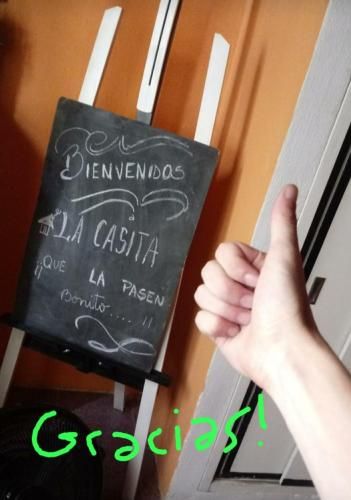 BIENVENIDOS
a
LA CASITA
¡¡QUE LA PASEN
Bonito.....!!
Gracias!